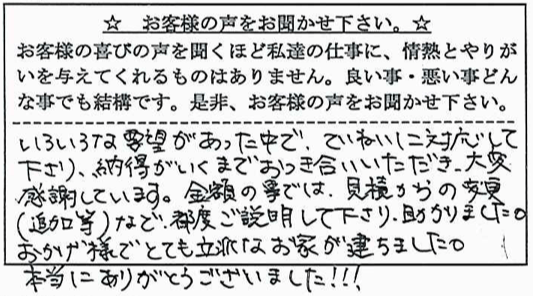 ☆ お客様の声をお聞かせ下さい。☆
お客様の喜びの声を聞くほど私達の仕事に、情熱とやりが
いを与えてくれるものはありません。良い事・悪い事どん
な事でも結構です。是非、お客様の声をお聞かせ下さい。
いろいろな要望があった中で、ていねいに対応して
下さり、納得がいくまでおつき合いいただき、大変
感謝しています。金額の事では、見積からの変更
(追加等)などで、都度ご説明して下さり、助かりました。
おかげ様でとても立派なお家が建ちました。
本当にありがとうございました!!!